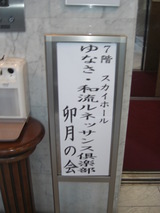 7階 スカイホール
ゆなさ・和流ルネッサンス倶楽部
卯月の会